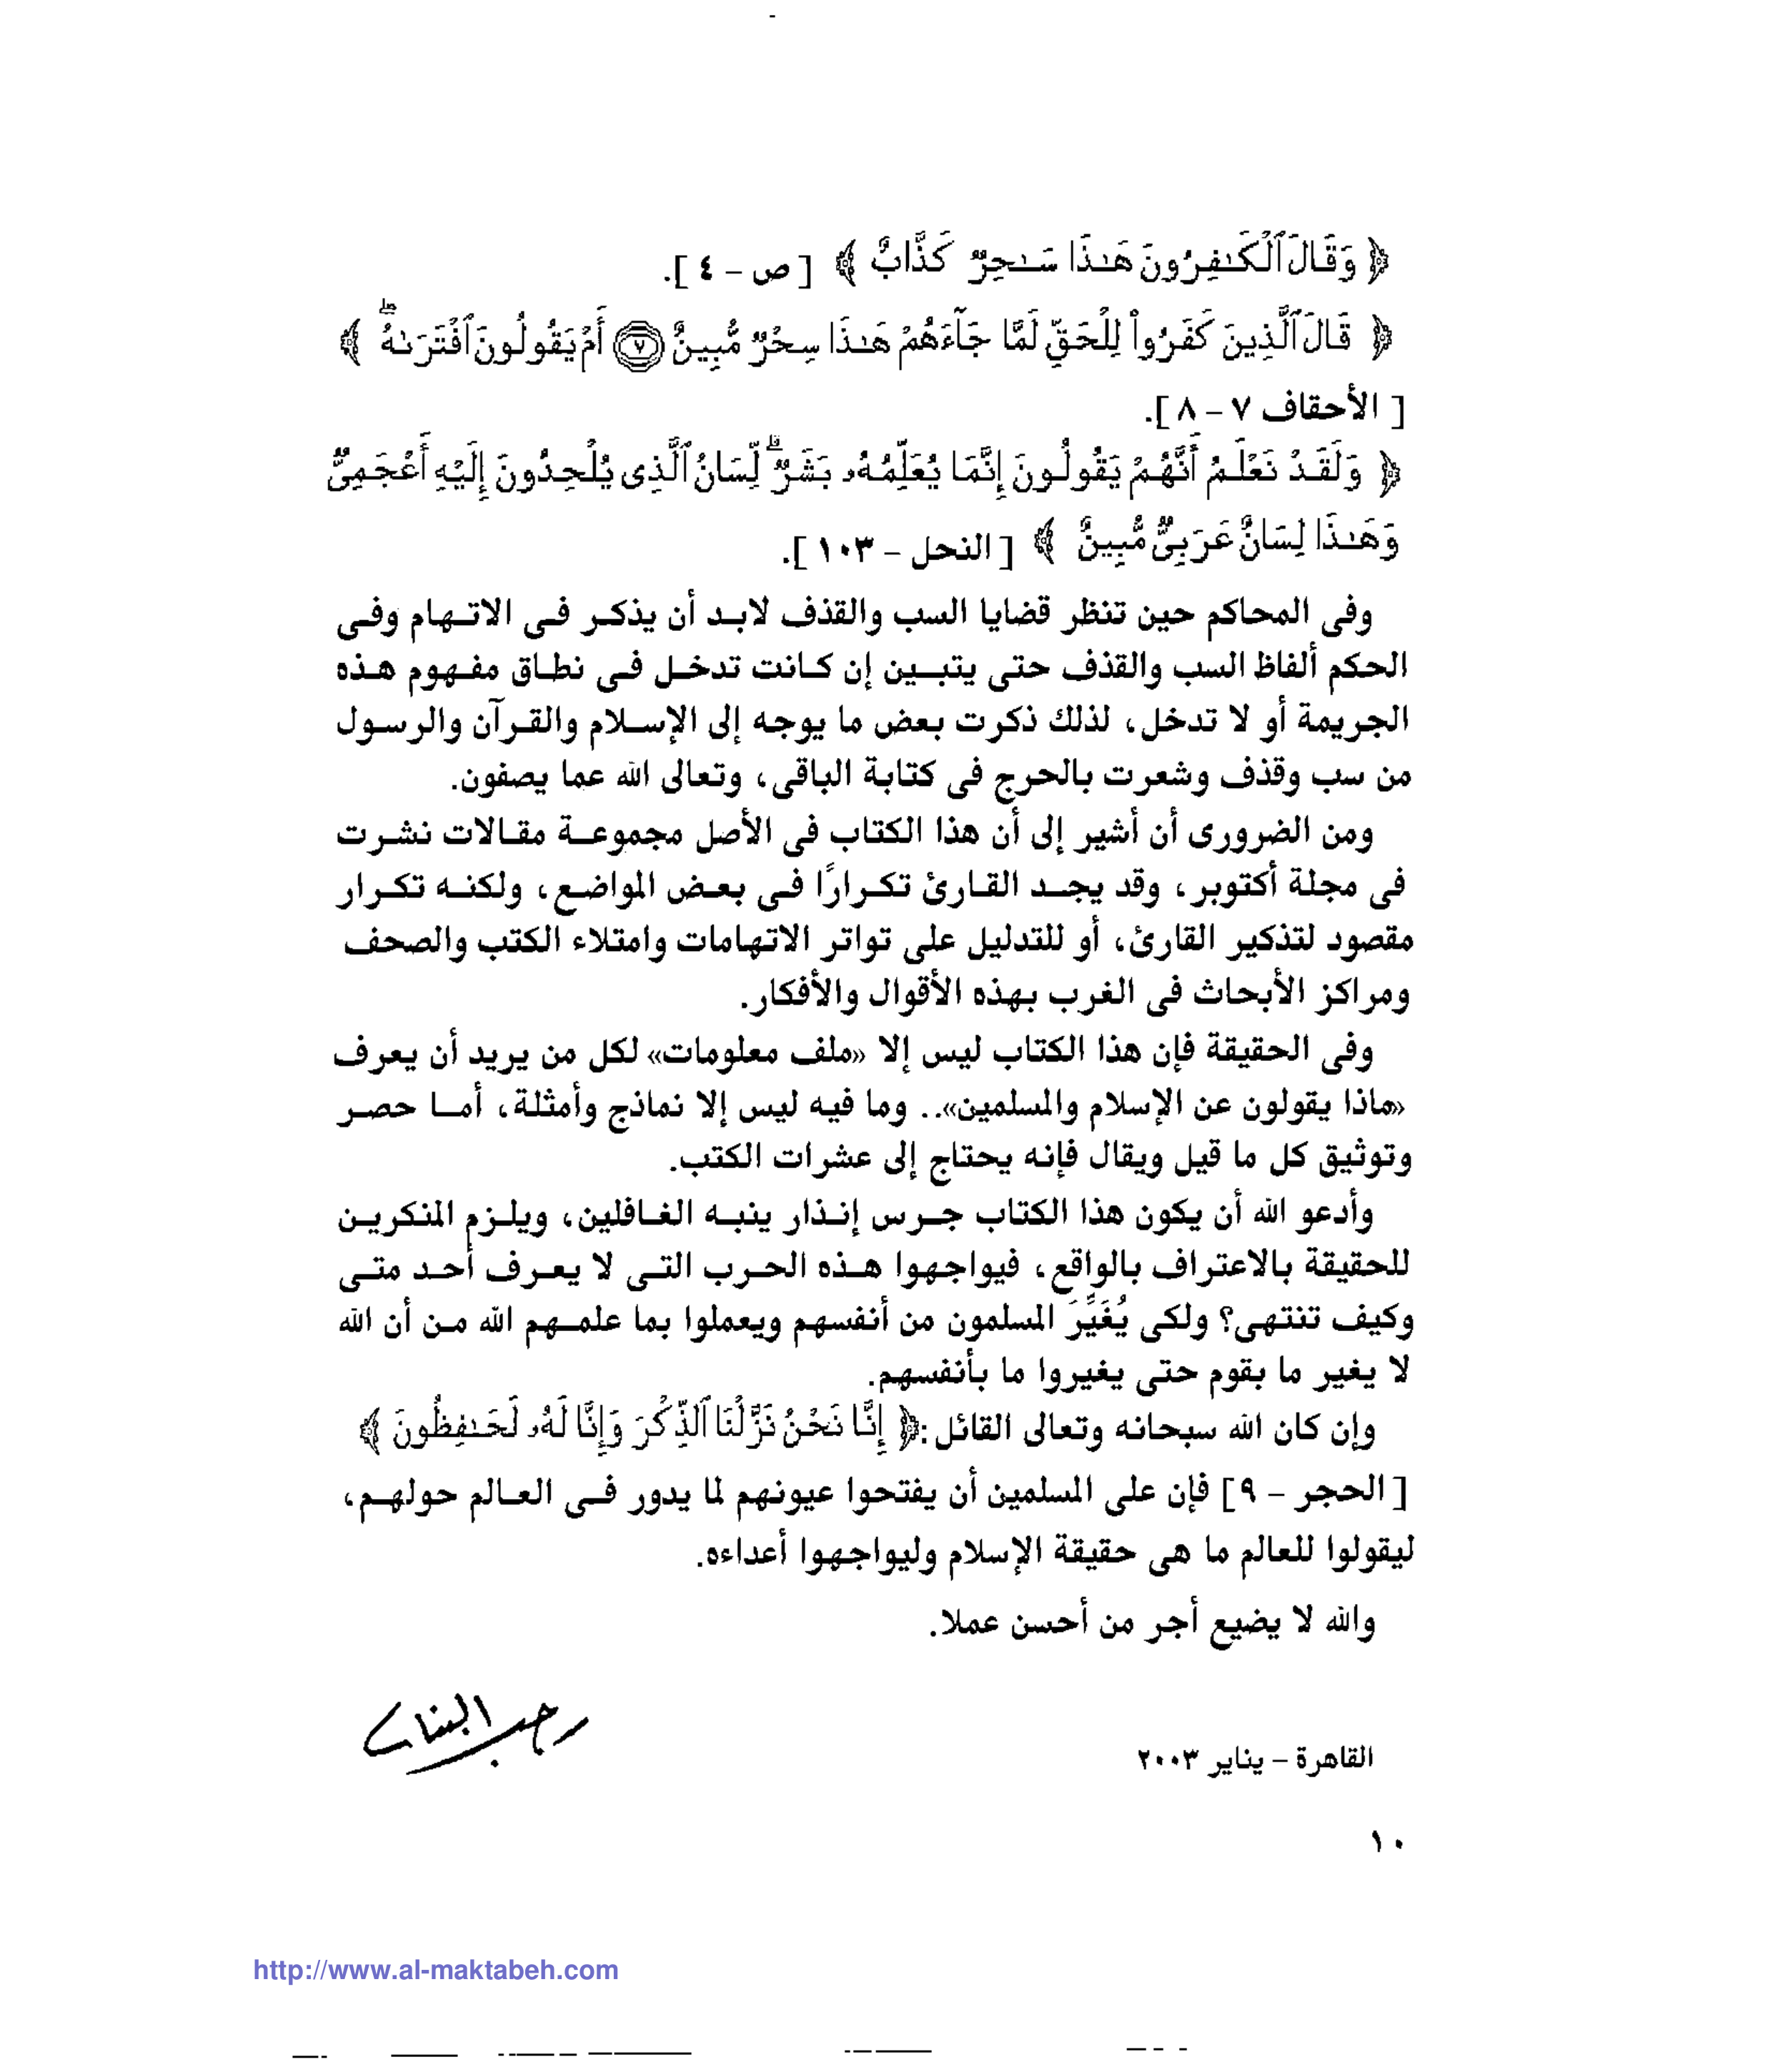 ﴿ وَقَالَ ٱلْكَـٰفِرُونَ هَـٰذَا سَـٰحِرٌ كَذَّابٌ ﴾ [ ص – ٤ ].
﴿ قَالَ ٱلَّذِينَ كَفَرُوا۟ لِلْحَقِّ لَمَّا جَآءَهُمْ هَـٰذَا سِحْرٌ مُّبِينٌ ٧ أَمْ يَقُولُونَ ٱفْتَرَىٰهُ ۖ ﴾
[ الأحقاف ٧ – ٨ ].
﴿ وَلَقَدْ نَعْلَمُ أَنَّهُمْ يَقُولُونَ إِنَّمَا يُعَلِّمُهُۥ بَشَرٌ ۗ لِّسَانُ ٱلَّذِى يُلْحِدُونَ إِلَيْهِ أَعْجَمِىٌّ
وَهَـٰذَا لِسَانٌ عَرَبِىٌّ مُّبِينٌ ﴾ [ النحل – ١٠٣ ].
وفى المحاكم حين تنظر قضايا السب والقذف لابد أن يذكر فى الاتهام وفى
الحكم ألفاظ السب والقذف حتى يتبين إن كانت تدخل فى نطاق مفهوم هذه
الجريمة أو لا تدخل، لذلك ذكرت بعض ما يوجه إلى الإسلام والقرآن والرسول
من سب وقذف وشعرت بالحرج فى كتابة الباقى، وتعالى الله عما يصفون.
ومن الضرورى أن أشير إلى أن هذا الكتاب فى الأصل مجموعة مقالات نشرت
فى مجلة أكتوبر، وقد يجد القارئ تكرارًا فى بعض المواضع، ولكنه تكرار
مقصود لتذكير القارئ، أو للتدليل على تواتر الاتهامات وامتلاء الكتب والصحف
ومراكز الأبحاث فى الغرب بهذه الأقوال والأفكار.
وفى الحقيقة فإن هذا الكتاب ليس إلا «ملف معلومات» لكل من يريد أن يعرف
«ماذا يقولون عن الإسلام والمسلمين».. وما فيه ليس إلا نماذج وأمثلة، أما حصر
وتوثيق كل ما قيل ويقال فإنه يحتاج إلى عشرات الكتب.
وأدعو الله أن يكون هذا الكتاب جرس إنذار ينبه الغافلين، ويلزم المنكرين
للحقيقة بالاعتراف بالواقع، فيواجهوا هذه الحرب التى لا يعرف أحد متى
وكيف تنتهى؟ ولكى يُغَيِّرَ المسلمون من أنفسهم ويعملوا بما علمهم الله من أن الله
لا يغير ما بقوم حتى يغيروا ما بأنفسهم.
وإن كان الله سبحانه وتعالى القائل: ﴿ إِنَّا نَحْنُ نَزَّلْنَا ٱلذِّكْرَ وَإِنَّا لَهُۥ لَحَـٰفِظُونَ ﴾
[ الحجر – ٩ ] فإن على المسلمين أن يفتحوا عيونهم لما يدور فى العالم حولهم،
ليقولوا للعالم ما هى حقيقة الإسلام وليواجهوا أعداءه.
والله لا يضيع أجر من أحسن عملا.
رجب البنا
القاهرة – يناير ٢٠٠٣
١٠
http://www.al-maktabeh.com